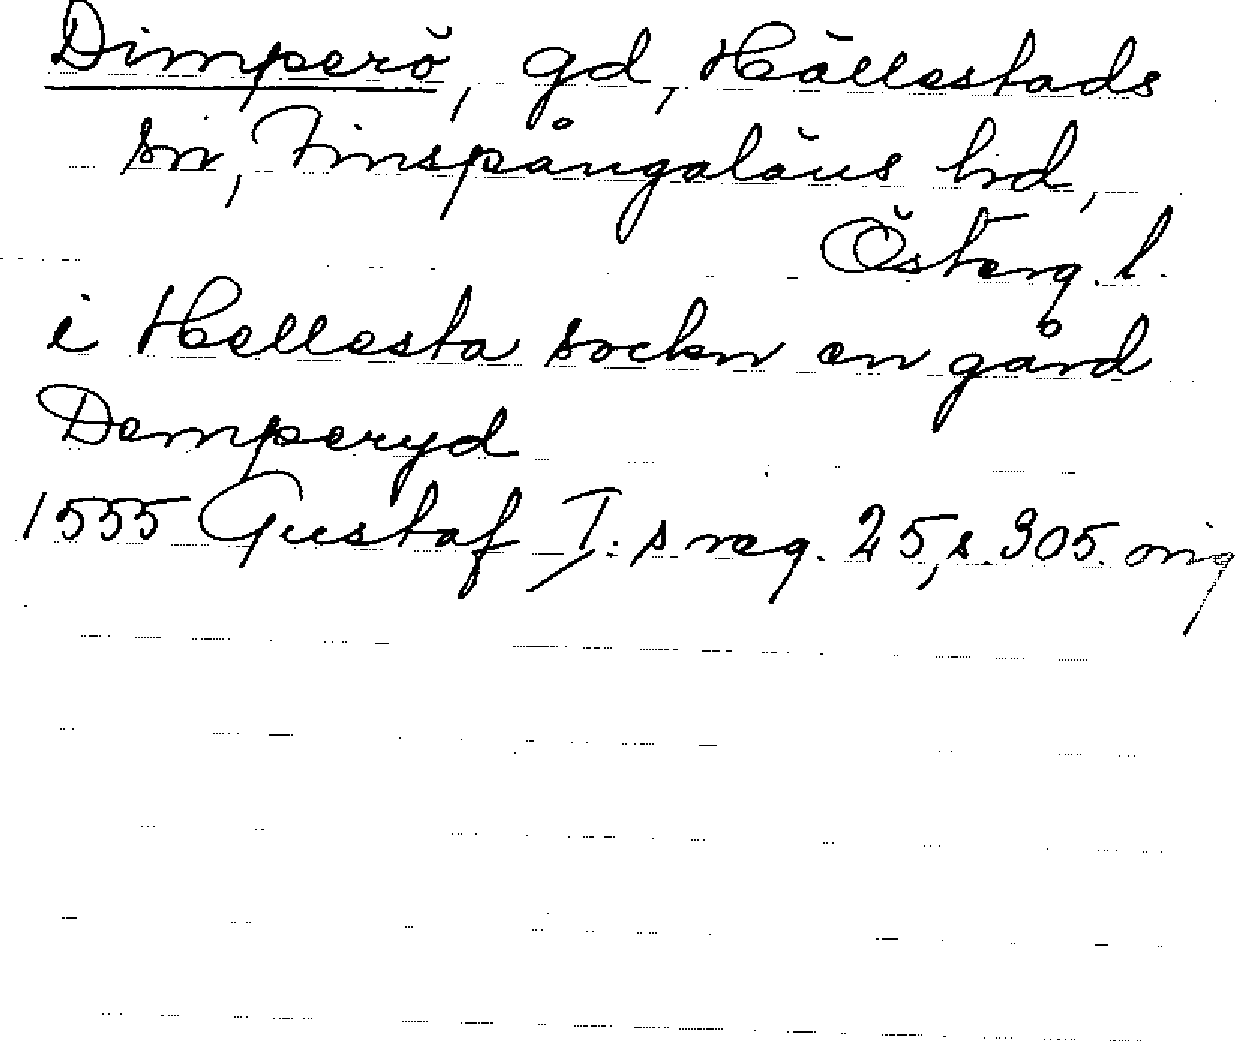 Dimperö, gd, Hällestads
sn, Finspångaläns hd,
Österg. l.
i Hellesta sockn en gård
Demperyd
1555 Gustaf I:s reg. 25, s. 305. orig